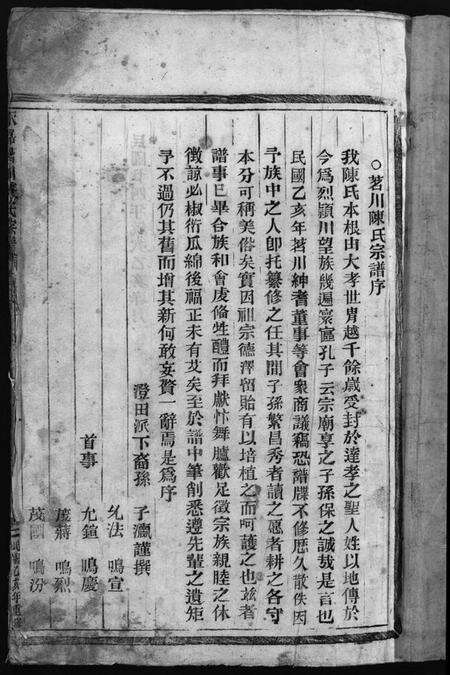 ○茗川陳氏宗譜序
我陳氏本根由大孝世冑越千餘歲受封於達孝之聖人姓以地傳於
今爲烈潁川望族幾遍寰區孔子云宗廟享之子孫保之誠哉是言也
民國乙亥年茗川紳耆董事等會衆商議竊恐譜牒不修歷久散佚因
予族中之人卽托纂修之任其間子孫繁昌秀者讀之愿者耕之各守
本分可稱美俗矣實因祖宗德澤留貽有以培植之而呵護之也玆者
譜事已畢合族和會虔脩牲醴而拜獻忭舞臚歡足徵宗族親睦之休
徵諒必椒衍瓜綿後福正未有艾矣至於譜中筆削悉遵先輩之遺矩
予不過仍其舊而增其新何敢妄贅一辭焉是爲序
澄田派下裔孫 子灝謹撰
首事
允法 鳴宣
允鍹 鳴慶
茂蔣 鳴烈
茂 鳴汾